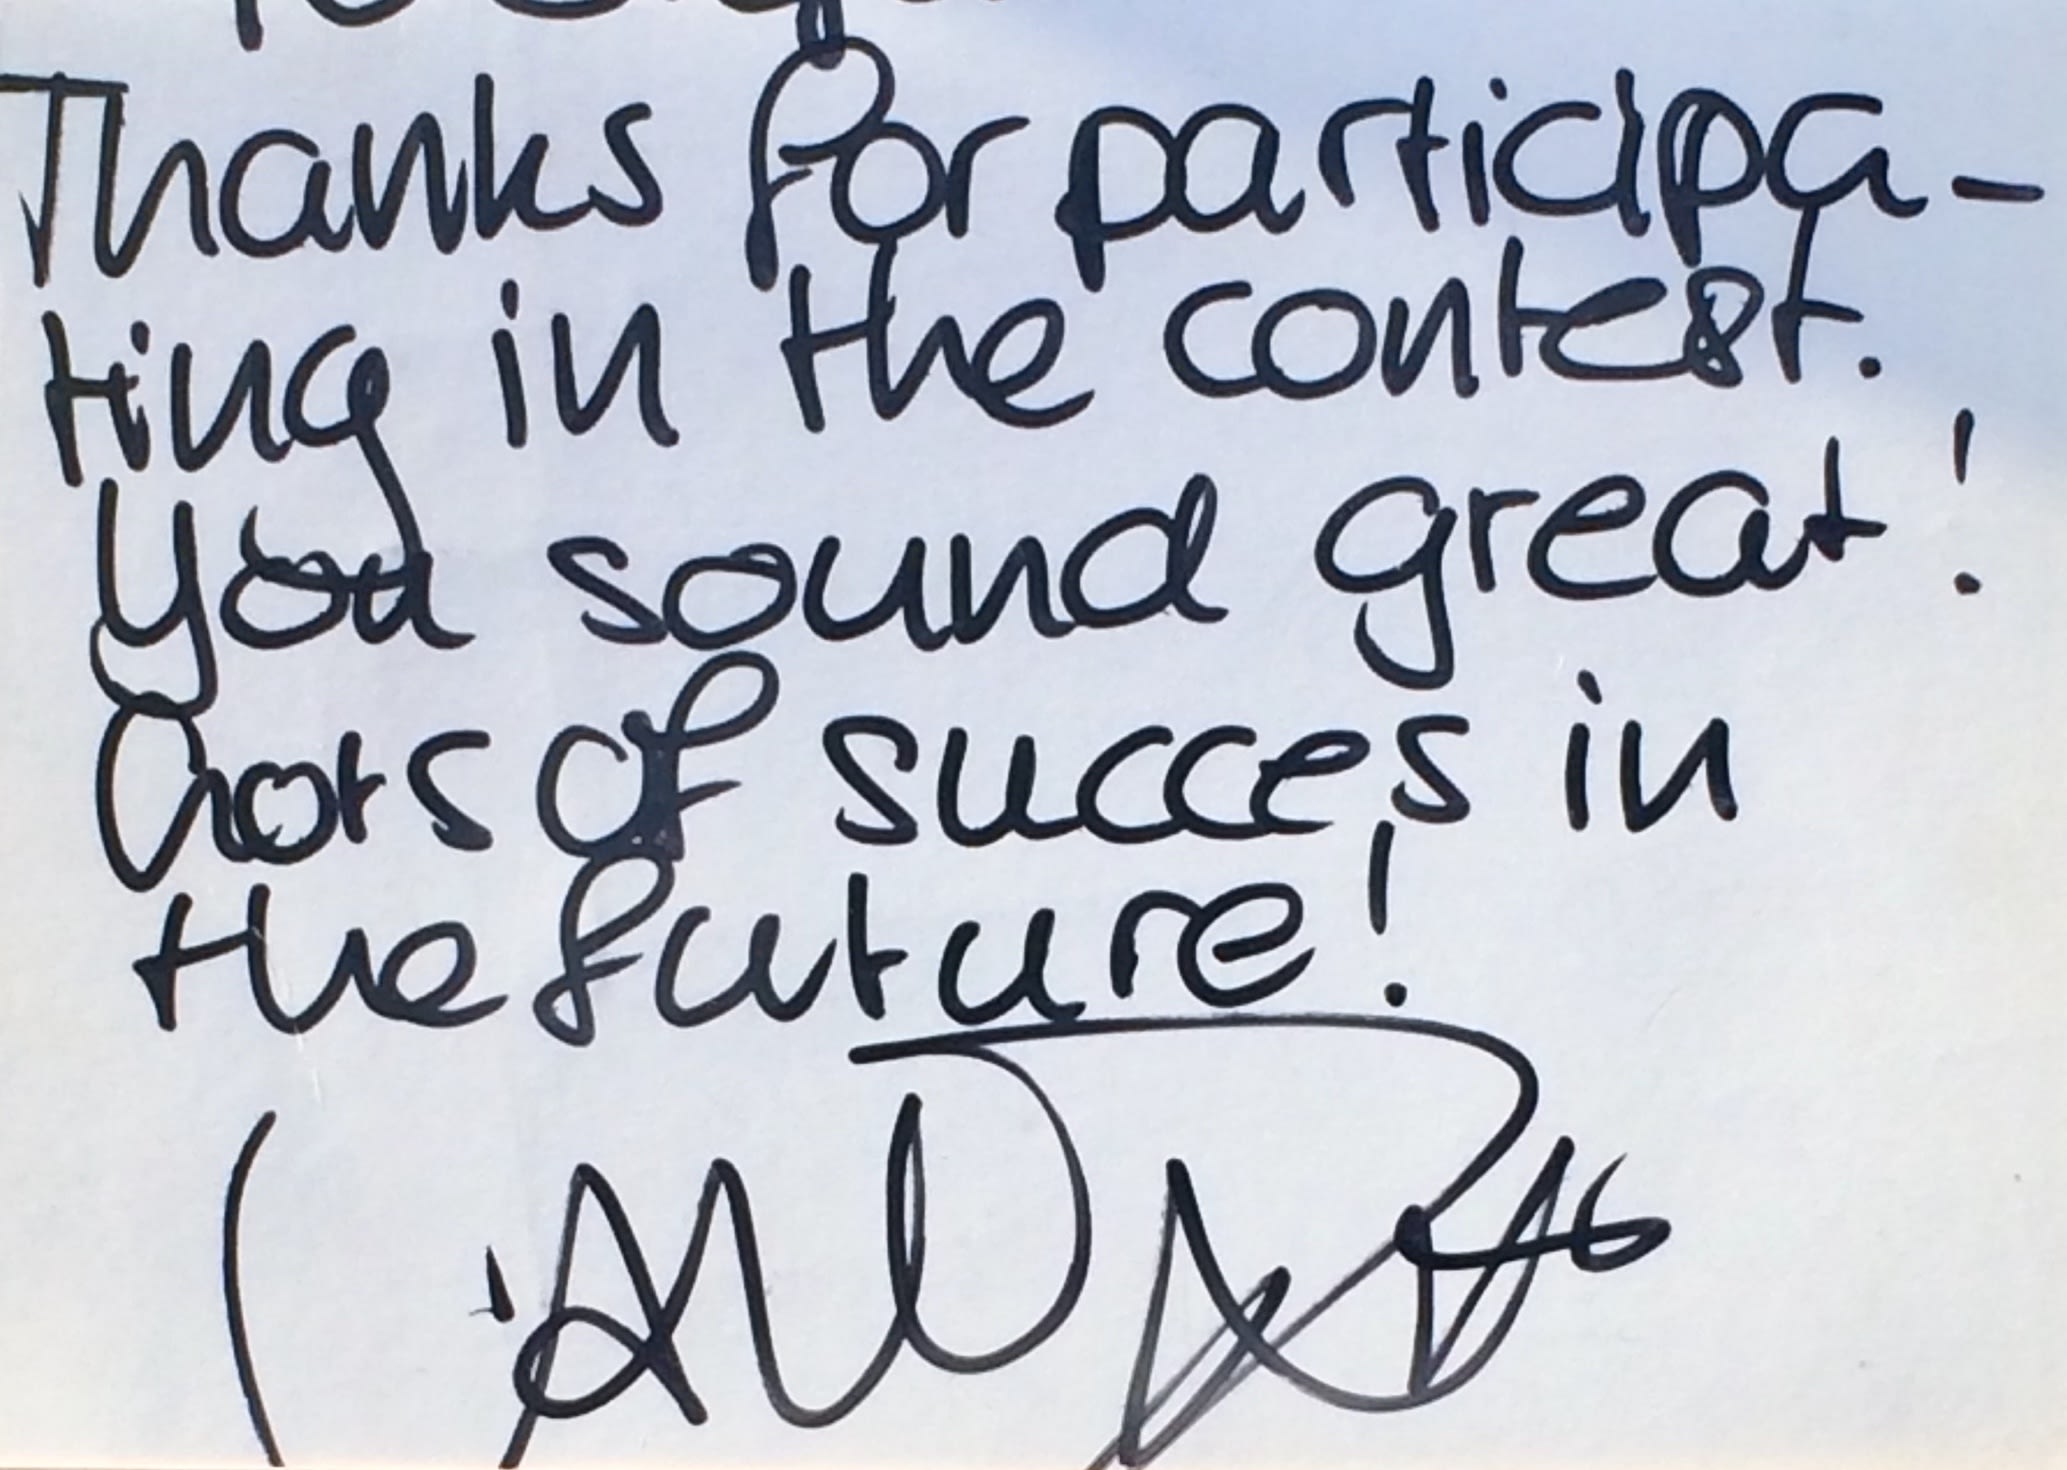 Thanks for participa-
ting in the contest.
You sound great!
Lots of succes in
the future!